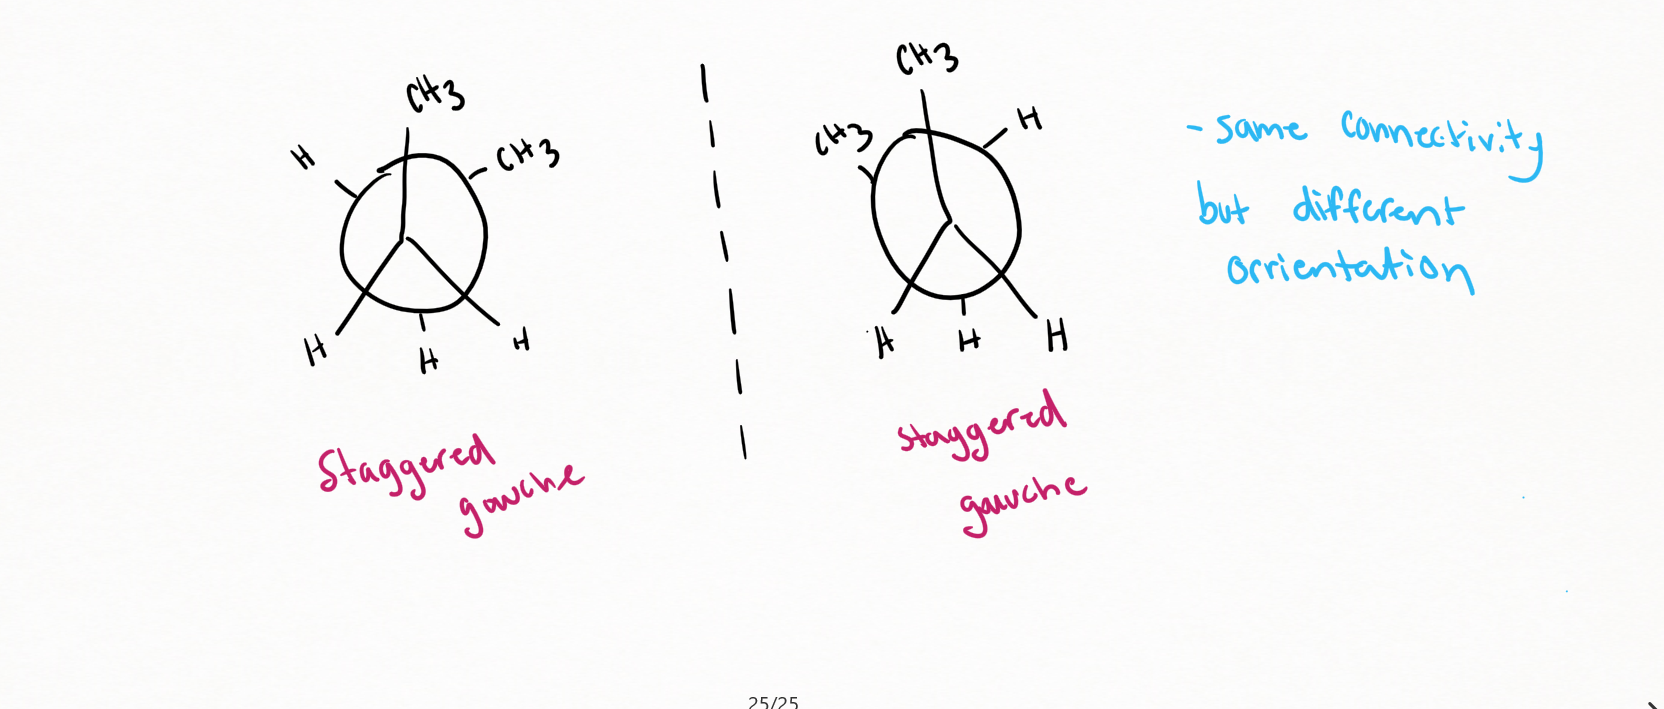 CH3
H
CH3
H
H
H
Staggered
gauche
CH3
CH3
H
H
H
H
staggered
gauche
- same connectivity
but different
orrientation
25/25